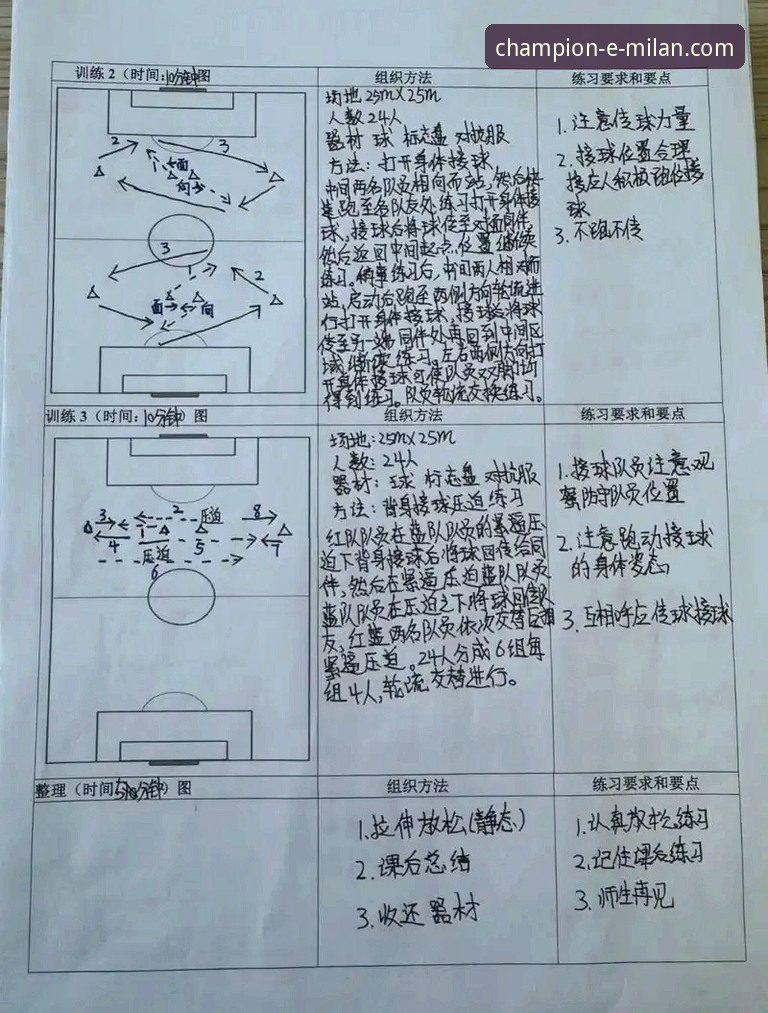 champion-e-milan.com
训练2（时间:10分钟）图
组织方法
练习要求和要点
2
3
面
向
3
1
2
面
向
场地 25m×25m
人数 24人
器材 球 标志盘 对抗服
方法：打开身体接球
中间两名队员相向而站，然后快
速跑至各队友处练习打开身体接
球，接球后将球传至对插同伴，
然后返回中间起点位置继续
练习。
练习后，中间两人相对而
站，启动后跑至两侧方向轮流进
行打开身体接球，接球后将球
传至另一端同伴处再回到中间区
域继续练习。左右两侧方向打
开身体接球可使队员双脚均
得到练习。队员轮流交换练习。
1.注意传球力量
2.接球位置合理
接应人积极跑位接
球
3.不跑不传
训练3（时间：10分钟）图
组织方法
练习要求和要点
3
2
压迫
8
4
1
5
7
压迫
6
场地：25m×25m
人数：24人
器材：球 标志盘 对抗服
方法：背身接球压迫练习
红队队员在蓝队队员的紧逼压
迫下背身接球后将球回传给同
伴，然后在紧逼压迫蓝队队员
蓝队队员在压迫之下将球回传队
友，红蓝两名队员依次交替互相
紧逼压迫。24人分成6组每
组4人，轮流交替进行。
1.接球队员注意观
察防守队员位置
2.注意跑动接球
的身体姿态，
3.互相呼应传球接球
整理（时间 分钟）图
组织方法
练习要求和要点
1.拉伸放松（静态）
2.课后总结
3.收还器材
1.认真放松练习
2.记住课后练习
3.师生再见